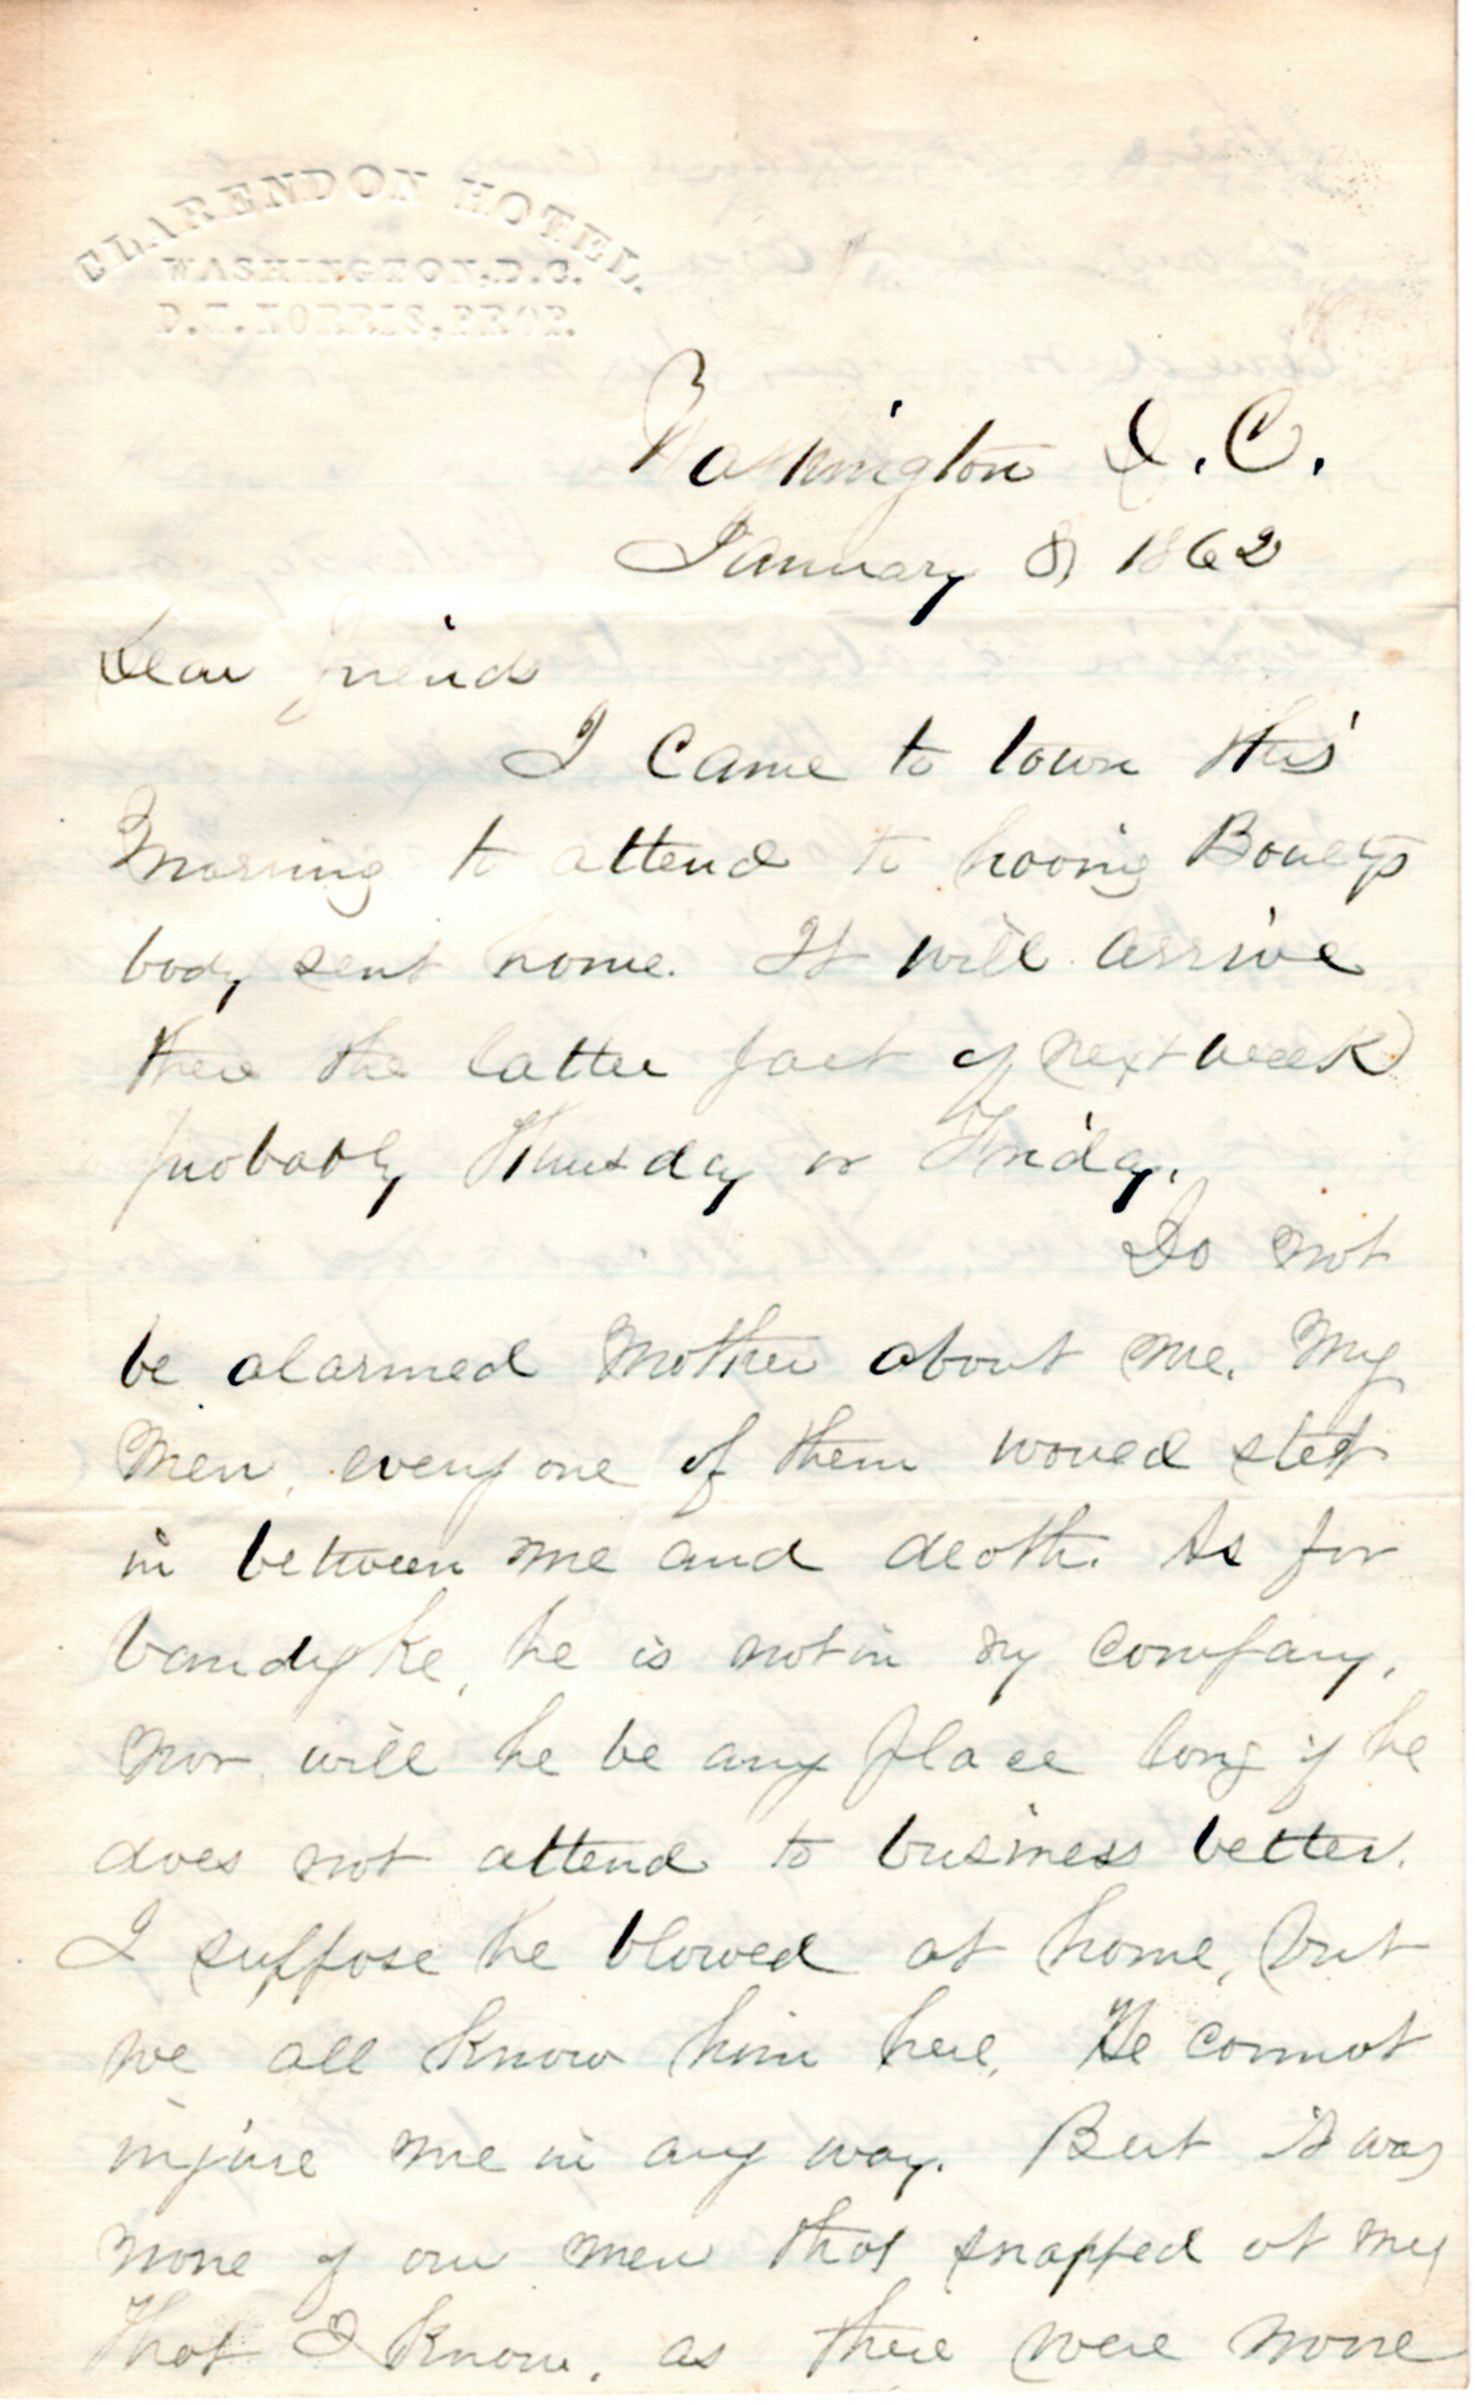 CLARENDON HOTEL.
WASHINGTON. D. C.
NORRIS, PROP.
Washington D. C.
January 8, 1862
Dear friends
I Came to town this
morning to attend to having
body sent home. It will arrive
there the latter part of next week
probably Thursday or Friday.
Do not
be alarmed Mother about me. My
men, every one of them would step
in between me and death. As for
Vandyke, he is not in my company,
nor will he be any place long if he
does not attend to business better.
I suppose he blowed at home, but
we all know him here. He cannot
injure me in any way. But it was
none of our men that snapped at me
that I know, as there were none